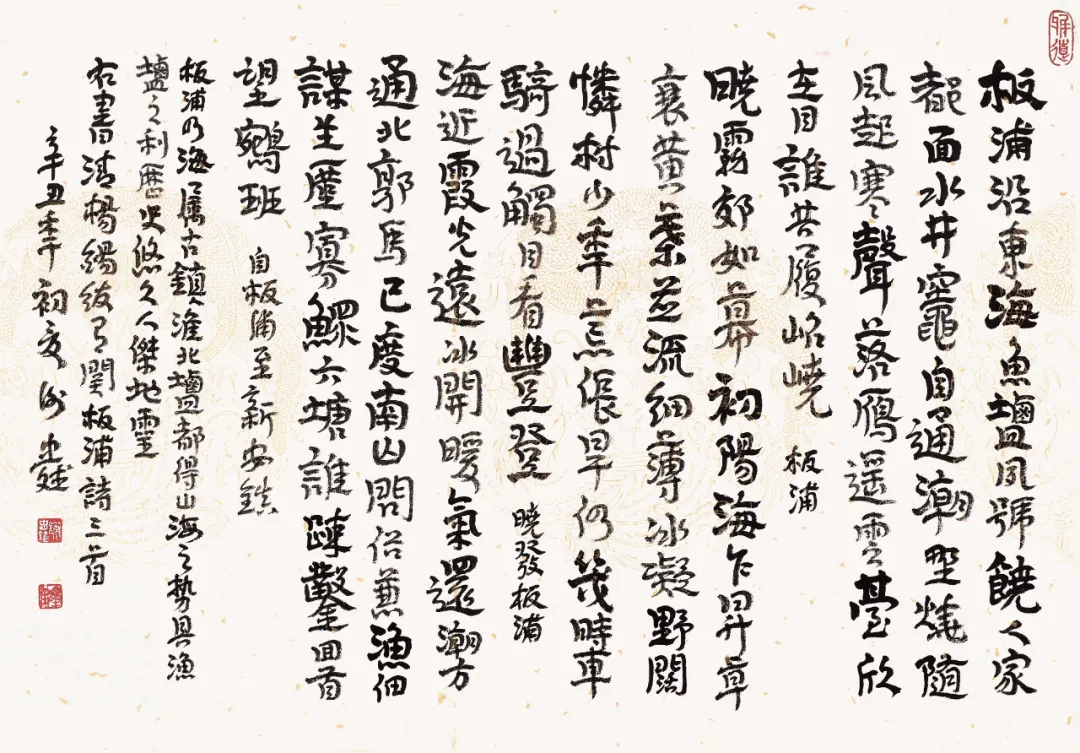 板浦沿東海魚鹽夙號饒人家
都面水井竈自通潮野燒隨
風起寒聲落雁遥雲臺欣
在目誰共履岧嶢 板浦
曉霧郊如幕初陽海乍昇草
衰黄葉並流細薄冰凝野闊
憐村少年荒悵旱仍幾時車
騎過觸目看豐登 曉發板浦
海近霞光遠冰開暖氣還潮方
通北郭馬已度南山問俗兼漁佃
謀生廑寡鰥六塘誰疏鑿回首
望鵷班 自板浦至新安鎮
板浦乃海属古鎮淮北鹽都得山海之勢具漁
鹽之利歷史悠久人傑地靈
右書清楊錫紱有関板浦詩三首
辛丑年初夏